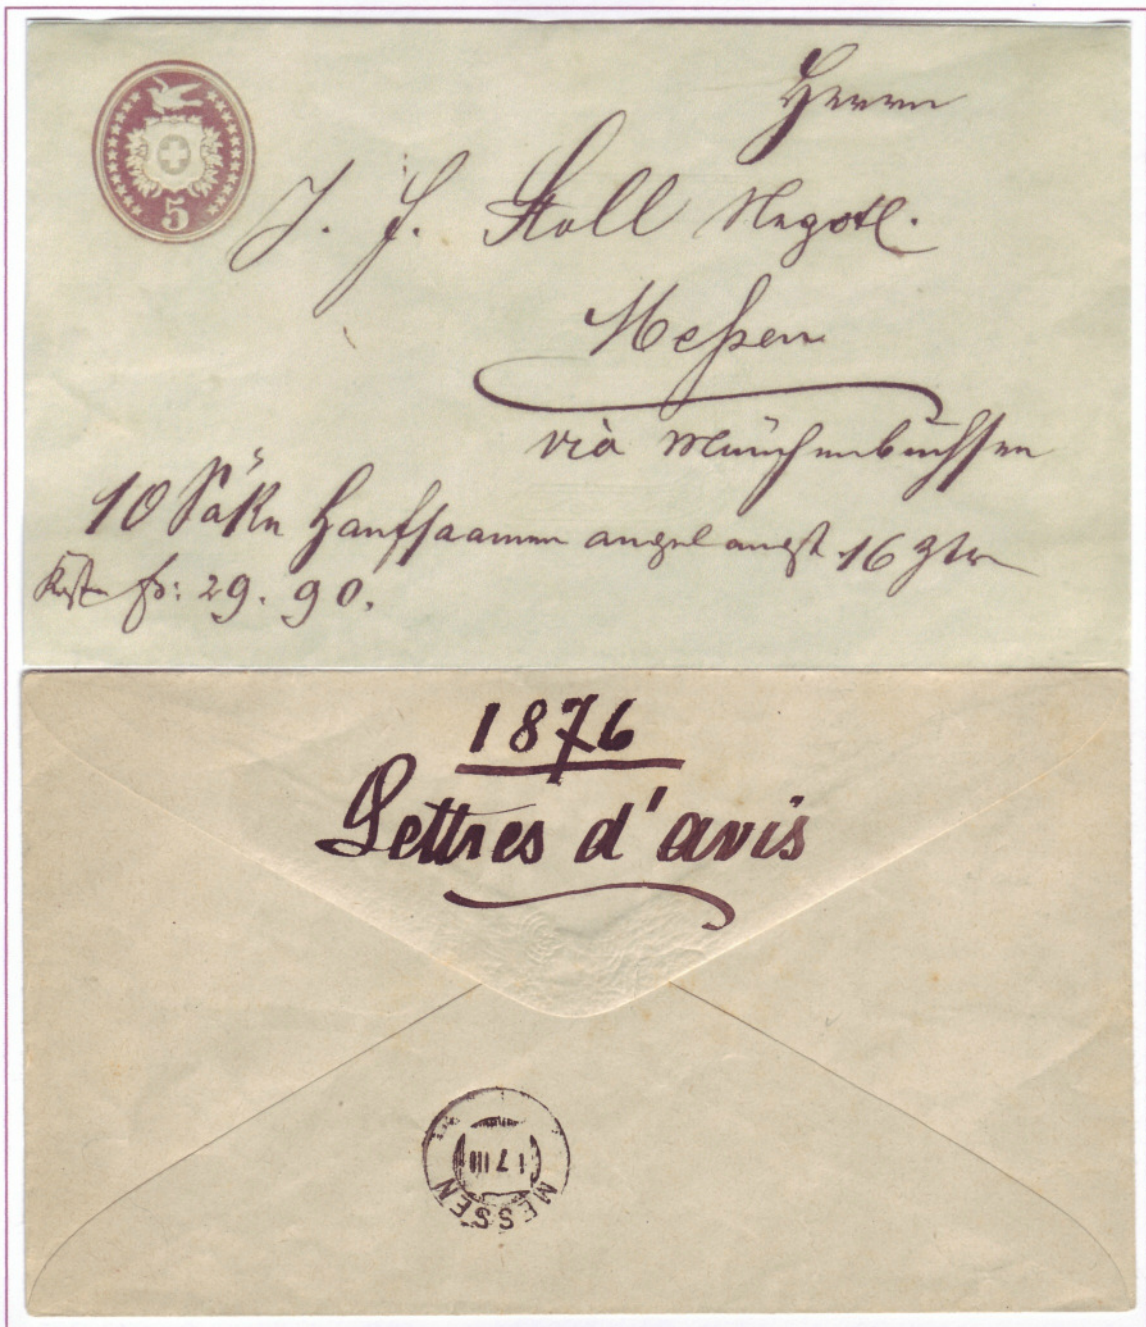 5
Herrn
J. J. Stoll Negotl.
Messen
via Münchenbuchsen
10 Säke Hanfsaamen angelangt 16 Ztr
Kost fr: 29. 90.
1876
Lettres d'avis
MESSEN
17 III